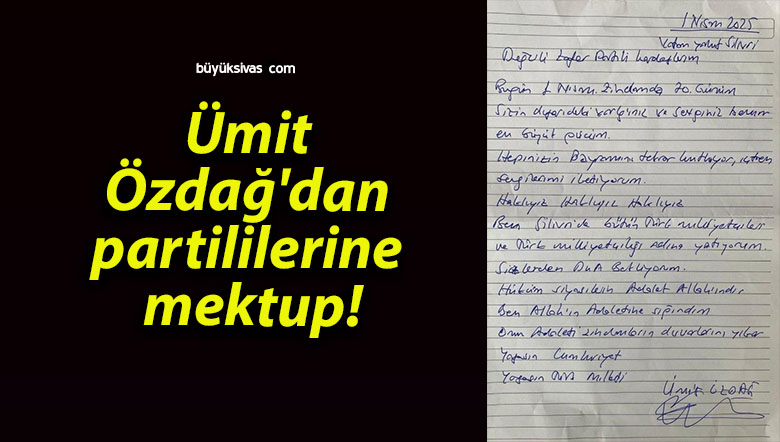 büyüksivas com
Ümit
Özdağ'dan
partililerine
mektup!
1 Nisan 2025
Vatan yahut Silivri
Değerli Zafer Partili kardeşlerim
Bugün 1 Nisan. Zindanda 70. Günüm
Sizin dışarıdaki varlığınız ve sevginiz benim
en büyük gücüm.
Hepinizin Bayramını tekrar kutluyor, içten
sevgilerimi iletiyorum.
Haklıyız Haklıyız Haklıyız
Ben Silivri'de bütün Türk milliyetçileri
ve Türk milliyetçiliği adına yatıyorum.
Sizlerden Dua Bekliyorum.
Hüküm siyasilerin Adalet Allahındır
Ben Allah'ın Adaletine sığındım
Onun Adaleti zindanların duvarlarını yıkar
Yaşasın Cumhuriyet
Yaşasın Türk Milleti
Ümit ÖZDAĞ